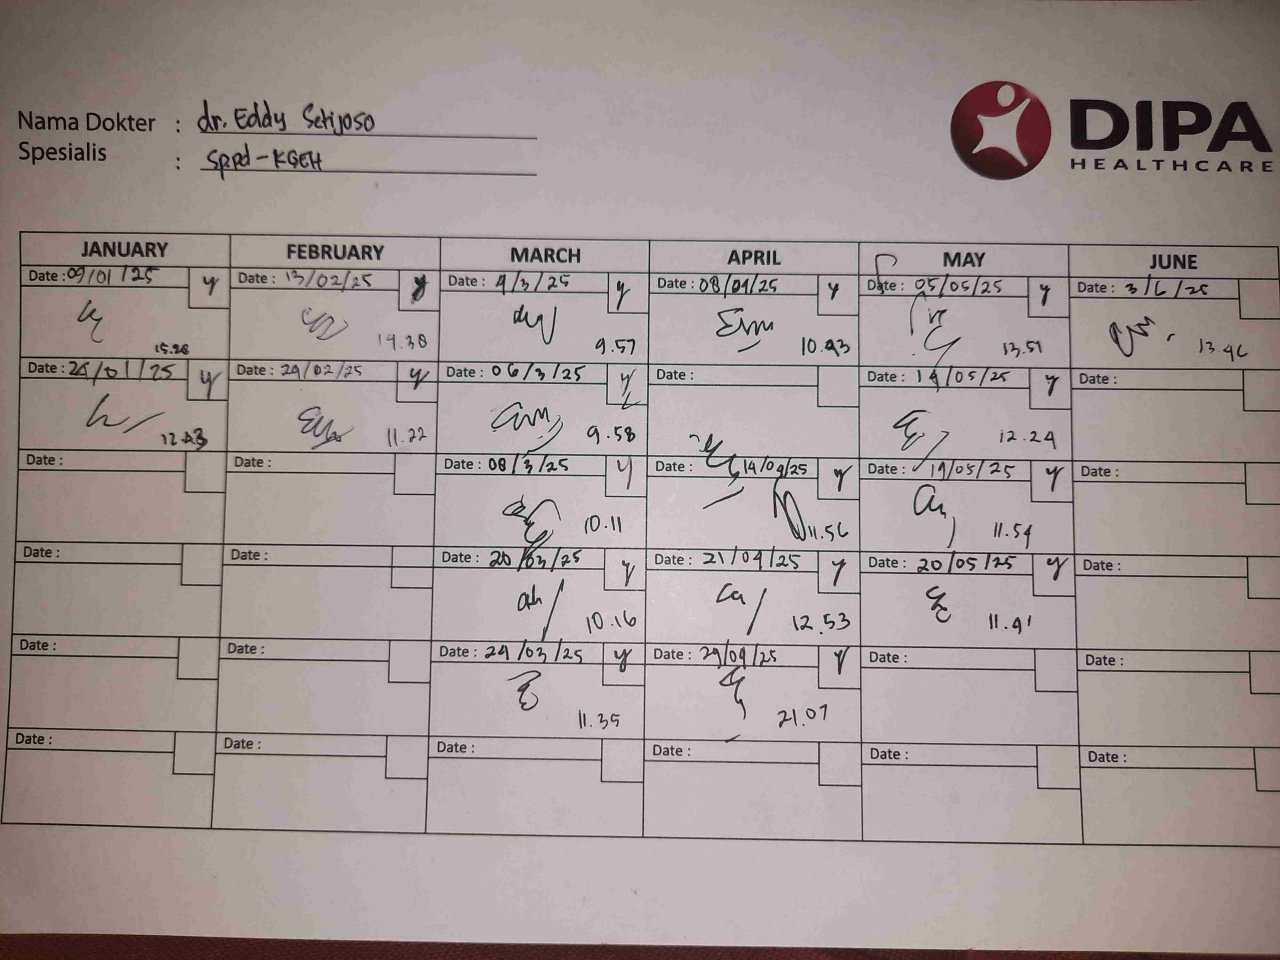 DIPA
HEALTHCARE
Nama Dokter : dr. Eddy Setijoso
Spesialis : SpPd-KGEH
JANUARY FEBRUARY MARCH APRIL MAY JUNE
Date : 09/01/25 y Date : 13/02/25 y Date : 4/3/25 y Date : 08/04/25 y Date : 05/05/25 y Date : 3/6/25
15.28 14.38 9.57 10.43 13.51 13.46
Date : /01/25 y Date : 24/02/25 y Date : 06/3/25 y Date : Date : 14/05/25 y Date :
12.43 11.22 9.58 12.24
Date : Date : Date : 08/3/25 y Date : 14/04/25 y Date : 19/05/25 y Date :
10.11 11.56 11.54
Date : Date : Date : 20/03/25 y Date : 21/04/25 y Date : 20/05/25 y Date :
10.16 12.53 11.41
Date : Date : Date : 24/03/25 y Date : 29/04/25 y Date : Date :
11.35 21.07
Date : Date : Date : Date : Date : Date :